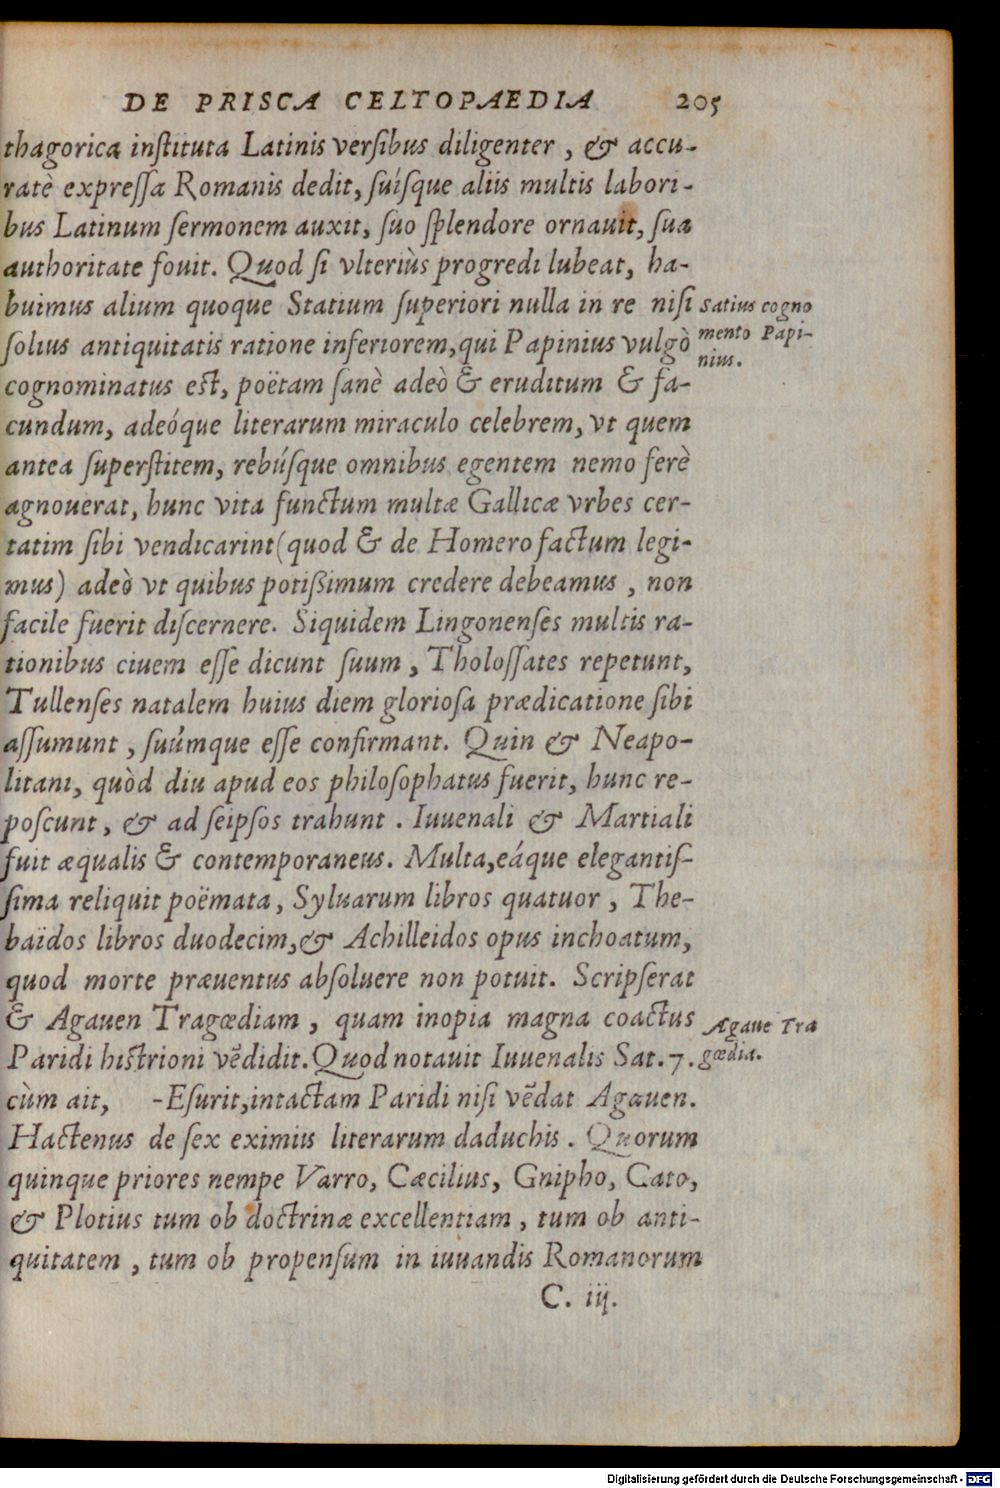 DE PRISCA CELTOPAEDIA 205
thagorica inſtituta Latinis verſibus diligenter, & accu-
ratè expreſſa Romanis dedit, ſuíſque aliis multis labori-
bus Latinum ſermonem auxit, ſuo ſplendore ornauit, ſua
authoritate fouit. Quod ſi vlteriùs progredi lubeat, ha-
buimus alium quoque Statium ſuperiori nulla in re niſi
ſolius antiquitatis ratione inferiorem, qui Papinius vulgò
cognominatus eſt, poëtam ſanè adeò & eruditum & fa-
cundum, adeóque literarum miraculo celebrem, vt quem
antea ſuperſtitem, rebúſque omnibus egentem nemo ferè
agnouerat, hunc vita functum multæ Gallicæ vrbes cer-
tatim ſibi vendicarint (quod & de Homero factum legi-
mus) adeò vt quibus potißimum credere debeamus, non
facile fuerit diſcernere. Siquidem Lingonenſes multis ra-
tionibus ciuem eſſe dicunt ſuum, Tholoſſates repetunt,
Tullenſes natalem huius diem glorioſa prædicatione ſibi
aſſumunt, ſuúmque eſſe confirmant. Quin & Neapo-
litani, quòd diu apud eos philoſophatus fuerit, hunc re-
poſcunt, & ad ſeipſos trahunt. Iuuenali & Martiali
fuit æqualis & contemporaneus. Multa, eáque elegantiſ-
ſima reliquit poëmata, Syluarum libros quatuor, The-
baïdos libros duodecim, & Achilleidos opus inchoatum,
quod morte præuentus abſoluere non potuit. Scripſerat
& Agauen Tragœdiam, quam inopia magna coactus
Paridi hiſtrioni vẽdidit. Quod notauit Iuuenalis Sat. 7.
cùm ait, -Eſurit, intactam Paridi niſi vẽdat Agauen.
Hactenus de ſex eximiis literarum daduchis. Quorum
quinque priores nempe Varro, Cæcilius, Gnipho, Cato,
& Plotius tum ob doctrinæ excellentiam, tum ob anti-
quitatem, tum ob propenſum in iuuandis Romanorum
C. iij.
Satius cogno
mento Papi-
nius.
Agaue Tra
gœdia.
Digitalisierung gefördert durch die Deutsche Forschungsgemeinschaft - DFG